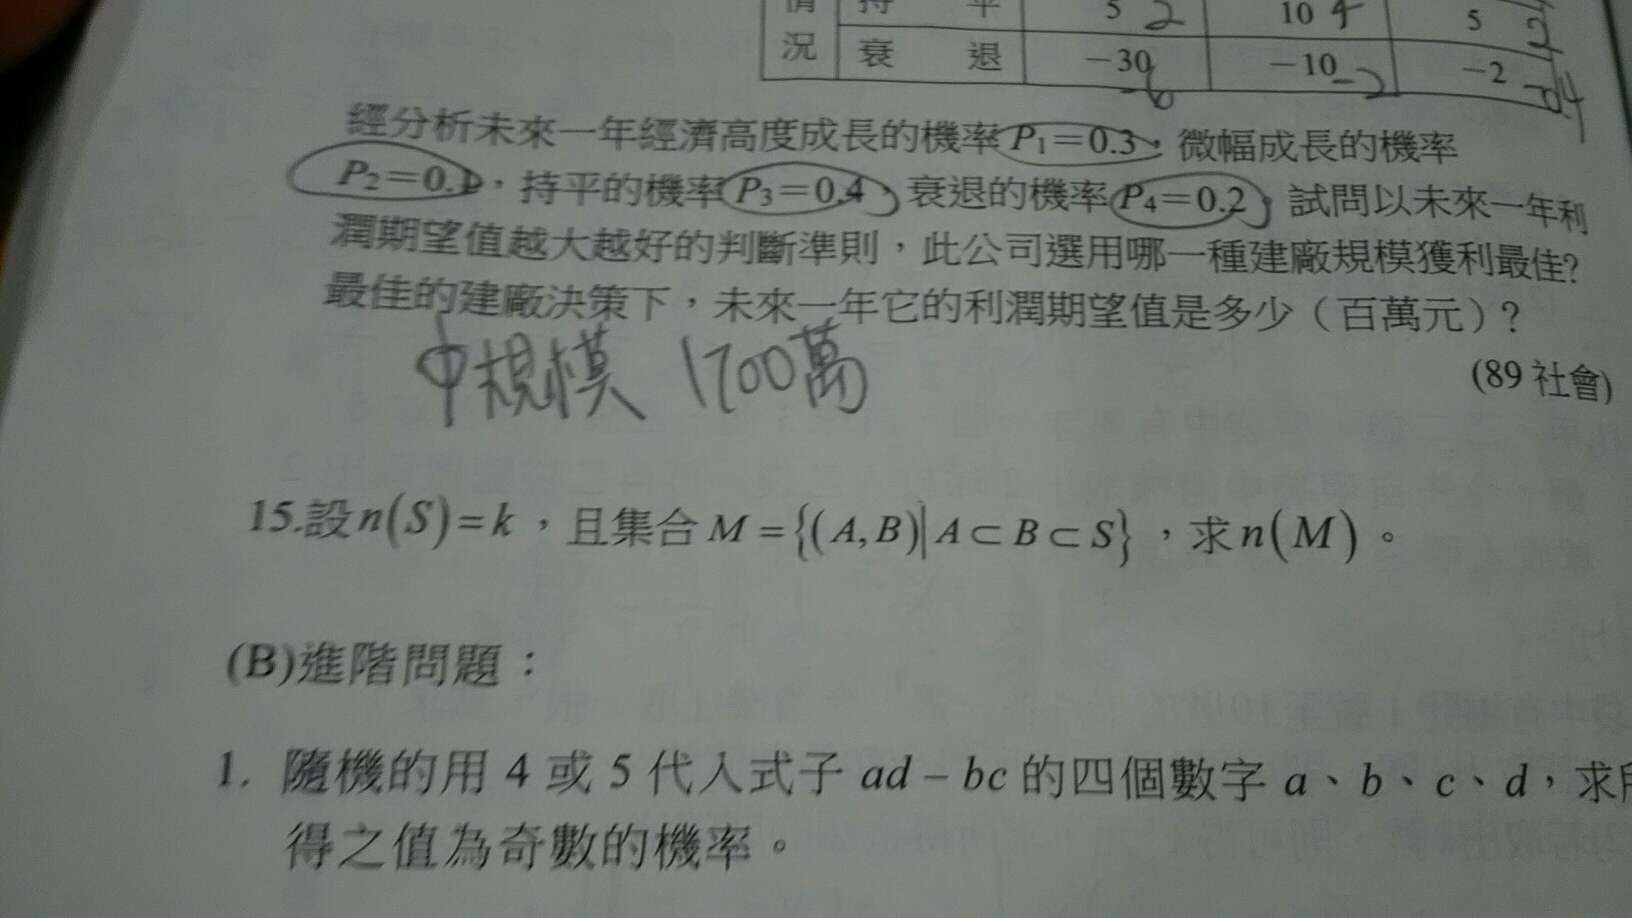 持 平 5 2 10 4 5 2
況 衰 退 -30 -6 -10 -2 -2
經分析未來一年經濟高度成長的機率P₁=0.3,微幅成長的機率
P₂=0.1,持平的機率P₃=0.4,衰退的機率P₄=0.2,試問以未來一年利
潤期望值越大越好的判斷準則,此公司選用哪一種建廠規模獲利最佳?
最佳的建廠決策下,未來一年它的利潤期望值是多少(百萬元)?
中規模 1700萬
(89 社會)
15.設n(S)=k,且集合M={(A,B)|A⊂B⊂S},求n(M)。
(B)進階問題:
1. 隨機的用 4 或 5 代入式子 ad-bc 的四個數字 a、b、c、d,求
得之值為奇數的機率。